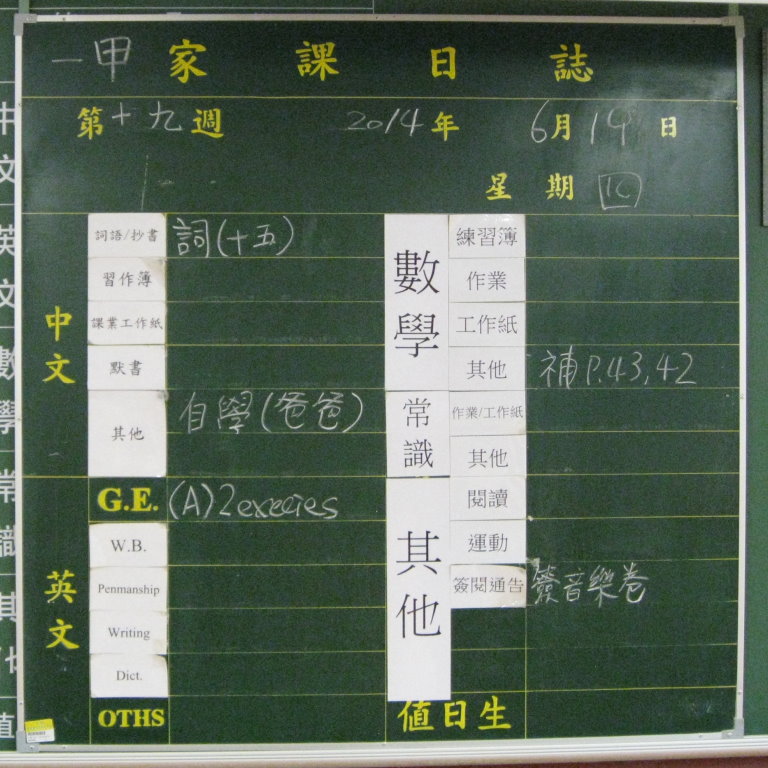 一甲 家課日誌
第十九週 2014年 6月19日
星期四
中文
詞語/抄書 詞(十五)
習作簿
課業工作紙
默書
其他 自學(爸爸)
英文
G.E. (A) 2 execies
W.B.
Penmanship
Writing
Dict.
OTHS
數學
練習簿
作業
工作紙
其他 補 P.43,42
常識
作業/工作紙
其他
其他
閱讀
運動
簽閱通告 簽音樂卷
值日生
中文
英文
數學
常識
其他
值